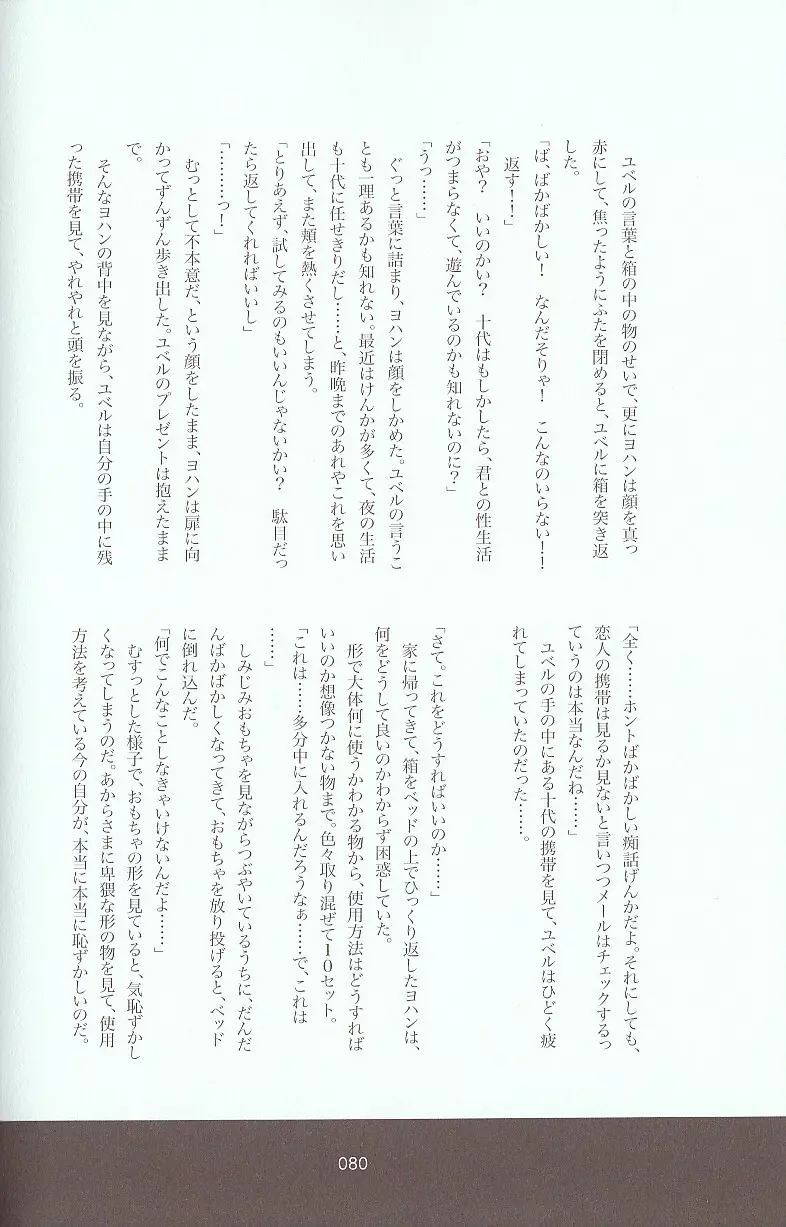 ユベルの言葉と箱の中の物のせいで、更にヨハンは顔を真っ
赤にして、焦ったようにふたを閉めると、ユベルに箱を突き返
した。
「ば、ばかばかしい！　なんだそりゃ！　こんなのいらない！！
　返す！！」
「おや？　いいのかい？　十代はもしかしたら、君との性生活
がつまらなくて、遊んでいるのかも知れないのに？」
「うっ……」
　ぐっと言葉に詰まり、ヨハンは顔をしかめた。ユベルの言うこ
とも一理あるかも知れない。最近はけんかが多くて、夜の生活
も十代に任せきりだし……と、昨晩までのあれやこれを思い
出して、また頬を熱くさせてしまう。
「とりあえず、試してみるのもいいんじゃないかい？　駄目だっ
たら返してくれればいいし」
「…………っ！」
　むっとして不本意だ、という顔をしたまま、ヨハンは扉に向
かってずんずん歩き出した。ユベルのプレゼントは抱えたまま
で。
　そんなヨハンの背中を見ながら、ユベルは自分の手の中に残
った携帯を見て、やれやれと頭を振る。
「全く……ホントばかばかしい痴話げんかだよ。それにしても、
恋人の携帯は見るか見ないと言いつつメールはチェックするっ
ていうのは本当なんだね……」
　ユベルの手の中にある十代の携帯を見て、ユベルはひどく疲
れてしまっていたのだった……。
「さて。これをどうすればいいのか……」
　家に帰ってきて、箱をベッドの上でひっくり返したヨハンは、
何をどうして良いのかわからず困惑していた。
　形で大体何に使うかわかる物から、使用方法はどうすれば
いいのか想像つかない物まで。色々取り混ぜて１０セット。
「これは……多分中に入れるんだろうなぁ……で、これは
……」
　しみじみおもちゃを見ながらつぶやいているうちに、だんだ
んばかばかしくなってきて、おもちゃを放り投げると、ベッド
に倒れ込んだ。
「何でこんなことしなきゃいけないんだよ……」
　むすっとした様子で、おもちゃの形を見ていると、気恥ずかし
くなってしまうのだ。あからさまに卑猥な形の物を見て、使用
方法を考えている今の自分が、本当に本当に恥ずかしいのだ。
080